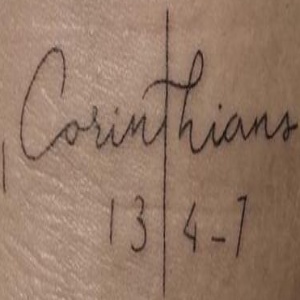 1 Corinthians
13 4-7